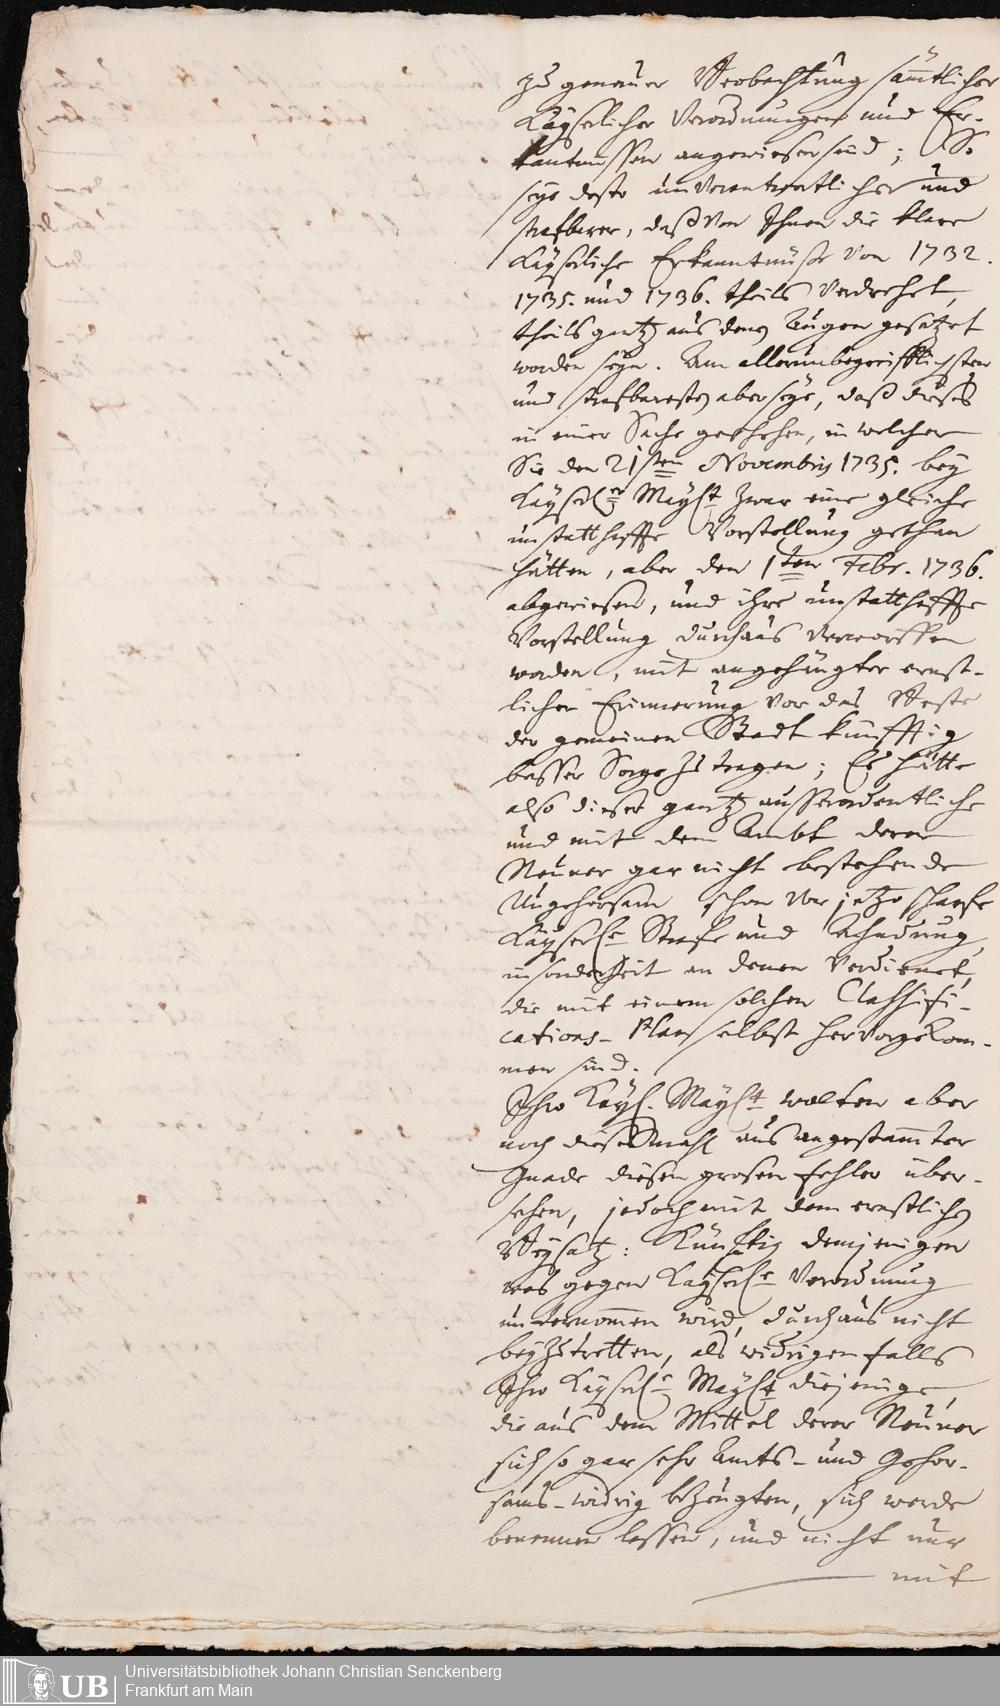 zu genauer Beobachtung sämtlicher
Kayserlicher Verordnungen und Er-
kantnussen angewiesen sind; So
seye desto unverantwortlicher und
strafbarer, daß von Ihnen die klare
Kayserliche Erkanntnüsse von 1732.
1735. und 1736. theils verdrehet,
theils gantz aus denen Augen gesetzet
worden seyn. Am allerunbegreifflichsten
und strafbaresten aber seye, daß dieses
in einer Sache geschehen, in welcher
Sie den 21sten Novembris 1735. bey
Kayserl.r Mayst. zwar eine gleiche
unstatthaffte Vorstellung gethan
hätten, aber den 1ten Febr. 1736.
abgewiesen, und ihre unstatthaffte
Vorstellung durchaus verworffen
worden, mit angehängter ernst-
licher Erinnerung vor das Beste
der gemeinen Stadt künfftig
besser Sorge zu tragen; Es hätte
also dieser gantz ausserordentliche
und mit dem Ambt derer
Neuner gar nicht bestehende
Ungehorsam schon vor jetzo scharfe
Kayserl.e Strafe und Ahndung,
insonderheit an denen verdienet,
die mit einem solchen Classifi-
cations-Plan selbst hervorgekom-
men sind.
Ihro Kayl. Mayst. wolten aber
noch dieses Mahl aus angestamter
Gnade diesen grosen Fehler über-
sehen, jedoch mit dem ernstlichen
Beysatz: Künftig demjenigen
was gegen Kayserl.e Verordnung
unternommen wird, durchaus nicht
beyzutretten, als widrigenfalls
Ihro Kayserl.e Mayst. diejenige,
die aus dem Mittel derer Neuner
sich so gar sehr Amts- und Gehor-
sams-widrig bezeugten, sich werde
benennen lassen, und nicht nur
mit
UB
Universitätsbibliothek Johann Christian Senckenberg
Frankfurt am Main